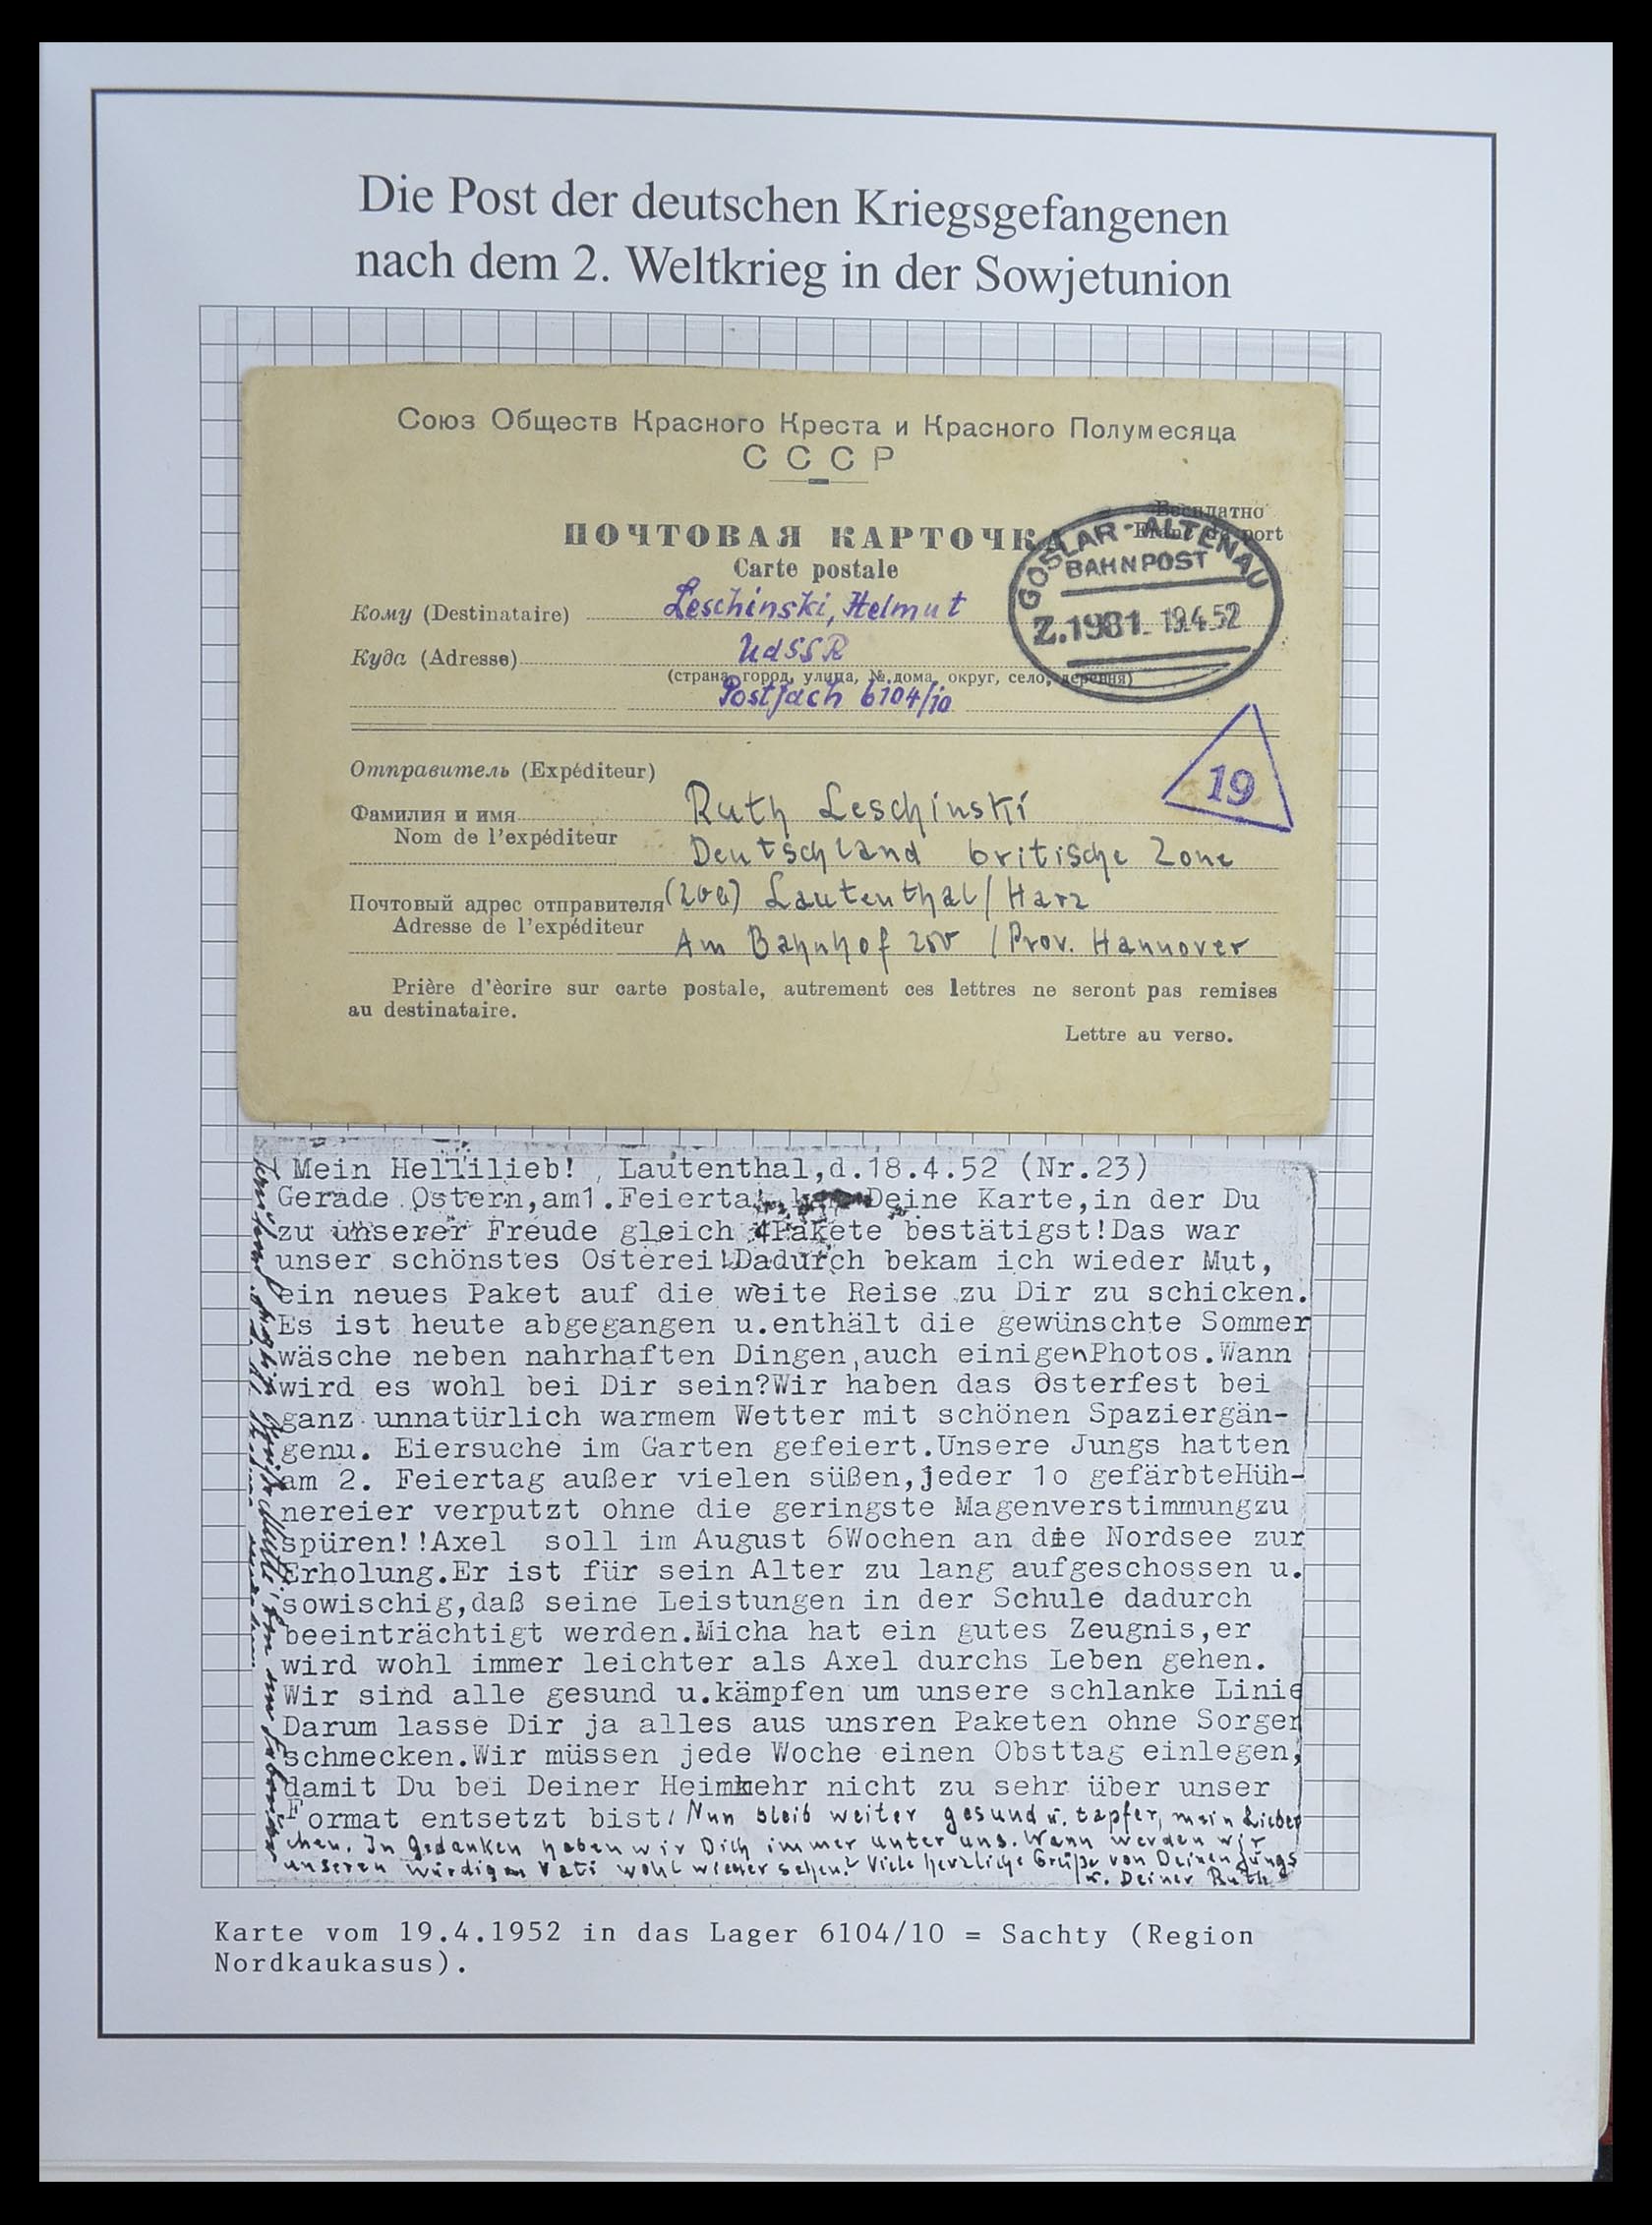 Die Post der deutschen Kriegsgefangenen
nach dem 2. Weltkrieg in der Sowjetunion
Союз Обществ Красного Креста и Красного Полумесяца
СССР
Бесплатно
Franc de port
ПОЧТОВАЯ КАРТОЧКА
Carte postale
GOSLAR-ALTENAU
BAHNPOST
Z.1981 19.4.52
Кому (Destinataire) Leschinski, Helmut
Куда (Adresse) UdSSR
(страна, город, улица, № дома, округ, село, деревня)
Postfach 6104/10
19
Отправитель (Expéditeur)
Фамилия и имя Ruth Leschinski
Nom de l'expéditeur
Deutschland britische Zone
Почтовый адрес отправителя (20a) Lautenthal / Harz
Adresse de l'expéditeur
Am Bahnhof / Prov. Hannover
Prière d'ècrire sur carte postale, autrement ces lettres ne seront pas remises
au destinataire.
Lettre au verso.
Mein Hellilieb! Lautenthal,d.18.4.52 (Nr.23)
Gerade Ostern,am1.Feierta Deine Karte,in der Du
zu unserer Freude gleich 4Pakete bestätigst!Das war
unser schönstes Osterei!Dadurch bekam ich wieder Mut,
ein neues Paket auf die weite Reise zu Dir zu schicken.
Es ist heute abgegangen u.enthält die gewünschte Sommer
wäsche neben nahrhaften Dingen,auch einigenPhotos.Wann
wird es wohl bei Dir sein?Wir haben das Osterfest bei
ganz unnatürlich warmem Wetter mit schönen Spaziergän-
genu. Eiersuche im Garten gefeiert.Unsere Jungs hatten
am 2. Feiertag außer vielen süßen,jeder 1o gefärbteHüh-
nereier verputzt ohne die geringste Magenverstimmungzu
spüren!!Axel soll im August 6Wochen an die Nordsee zur
Erholung.Er ist für sein Alter zu lang aufgeschossen u.
sowischig,daß seine Leistungen in der Schule dadurch
beeinträchtigt werden.Micha hat ein gutes Zeugnis,er
wird wohl immer leichter als Axel durchs Leben gehen.
Wir sind alle gesund u.kämpfen um unsere schlanke Linie
Darum lasse Dir ja alles aus unsren Paketen ohne Sorgen
schmecken.Wir müssen jede Woche einen Obsttag einlegen,
damit Du bei Deiner Heimkehr nicht zu sehr über unser
Format entsetzt bist! Nun bleib weiter gesund u. tapfer, mein Lieber
chen. In Gedanken haben wir Dich immer unter uns. Wann werden wir
unseren würdigen Vati wohl wieder sehen? Viele herzliche Grüße von Deinen Jungs
u. Deiner Ruth
Karte vom 19.4.1952 in das Lager 6104/10 = Sachty (Region
Nordkaukasus).